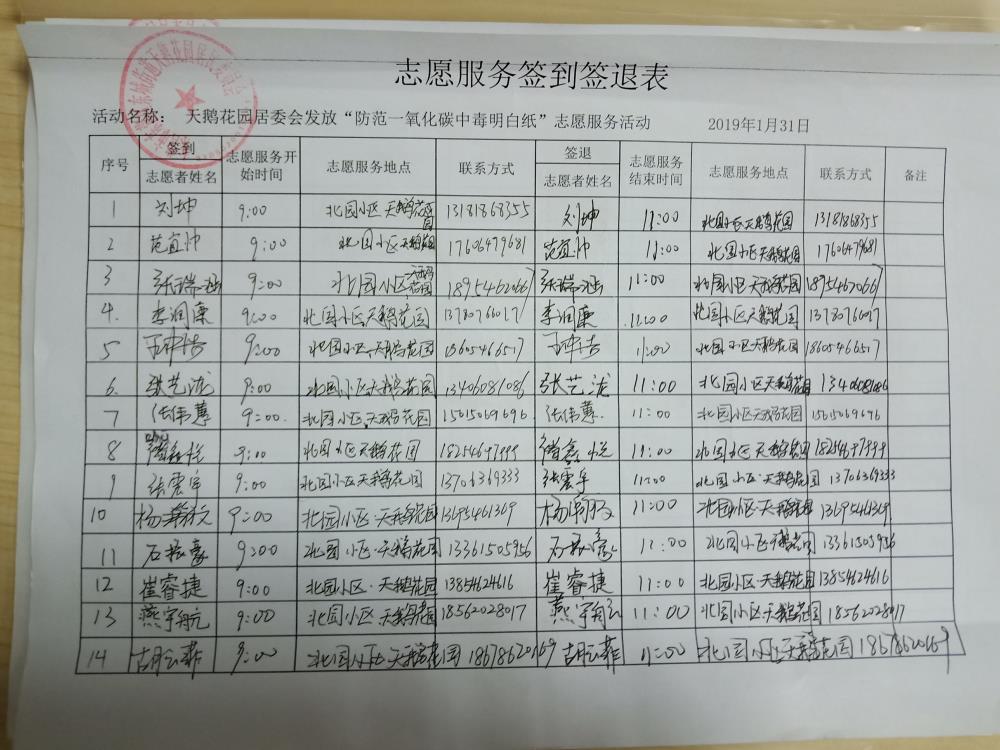 志愿服务签到签退表
活动名称： 天鹅花园居委会发放“防范一氧化碳中毒明白纸”志愿服务活动 2019年1月31日
序号 签到 志愿者姓名 志愿服务开始时间 志愿服务地点 联系方式 签退 志愿者姓名 志愿服务结束时间 志愿服务地点 联系方式 备注
1 刘坤 9:00 北园小区天鹅花园 13181868355 刘坤 11:00 北园小区天鹅花园 13181868355
2 9:00 北园小区天鹅花园 17606479681 11:00 北园小区天鹅花园 17606479681
3 张瑞涵 9:00 北园小区天鹅花园 18954620667 张瑞涵 11:00 北园小区天鹅花园
4. 李润廉 9:00 北园小区天鹅花园 13780766017 李润廉 11:00 北园小区天鹅花园 13780766017
5 9:00 北园小区天鹅花园 18605466517 11:00 北园小区天鹅花园 18605466517
6. 张艺泷 9:00 北园小区天鹅花园 13406081086 张艺泷 11:00 北园小区天鹅花园 13406081086
7 9:00. 北园小区天鹅花园 15615069696 11:00 北园小区天鹅花园 15615069696
8 9:00 北园小区天鹅花园 18254697999 11:00 北园小区天鹅花园
9 张震宇 9:00 北园小区天鹅花园 13706369333 张震宇 11:00 北园小区天鹅花园 13706369333
10 9:00 北园小区·天鹅花园 13695461369 11:00 北园小区·天鹅花园 13695461369
11 石振豪 9:00 北园小区·天鹅花园 13361505956 石振豪 11:00 北园小区天鹅花园 13361505956
12 崔睿捷 9:00 北园小区·天鹅花园 13854624616 崔睿捷 11:00 北园小区·天鹅花园 13854624616
13 燕宇航 9:00 北园小区·天鹅花园 18562028017 燕宇航 11:00 北园小区·天鹅花园 18562028017
14 胡云菲 9:00 北园小区天鹅花园 18678620169 胡云菲 11:00 北园小区天鹅花园 18678620169